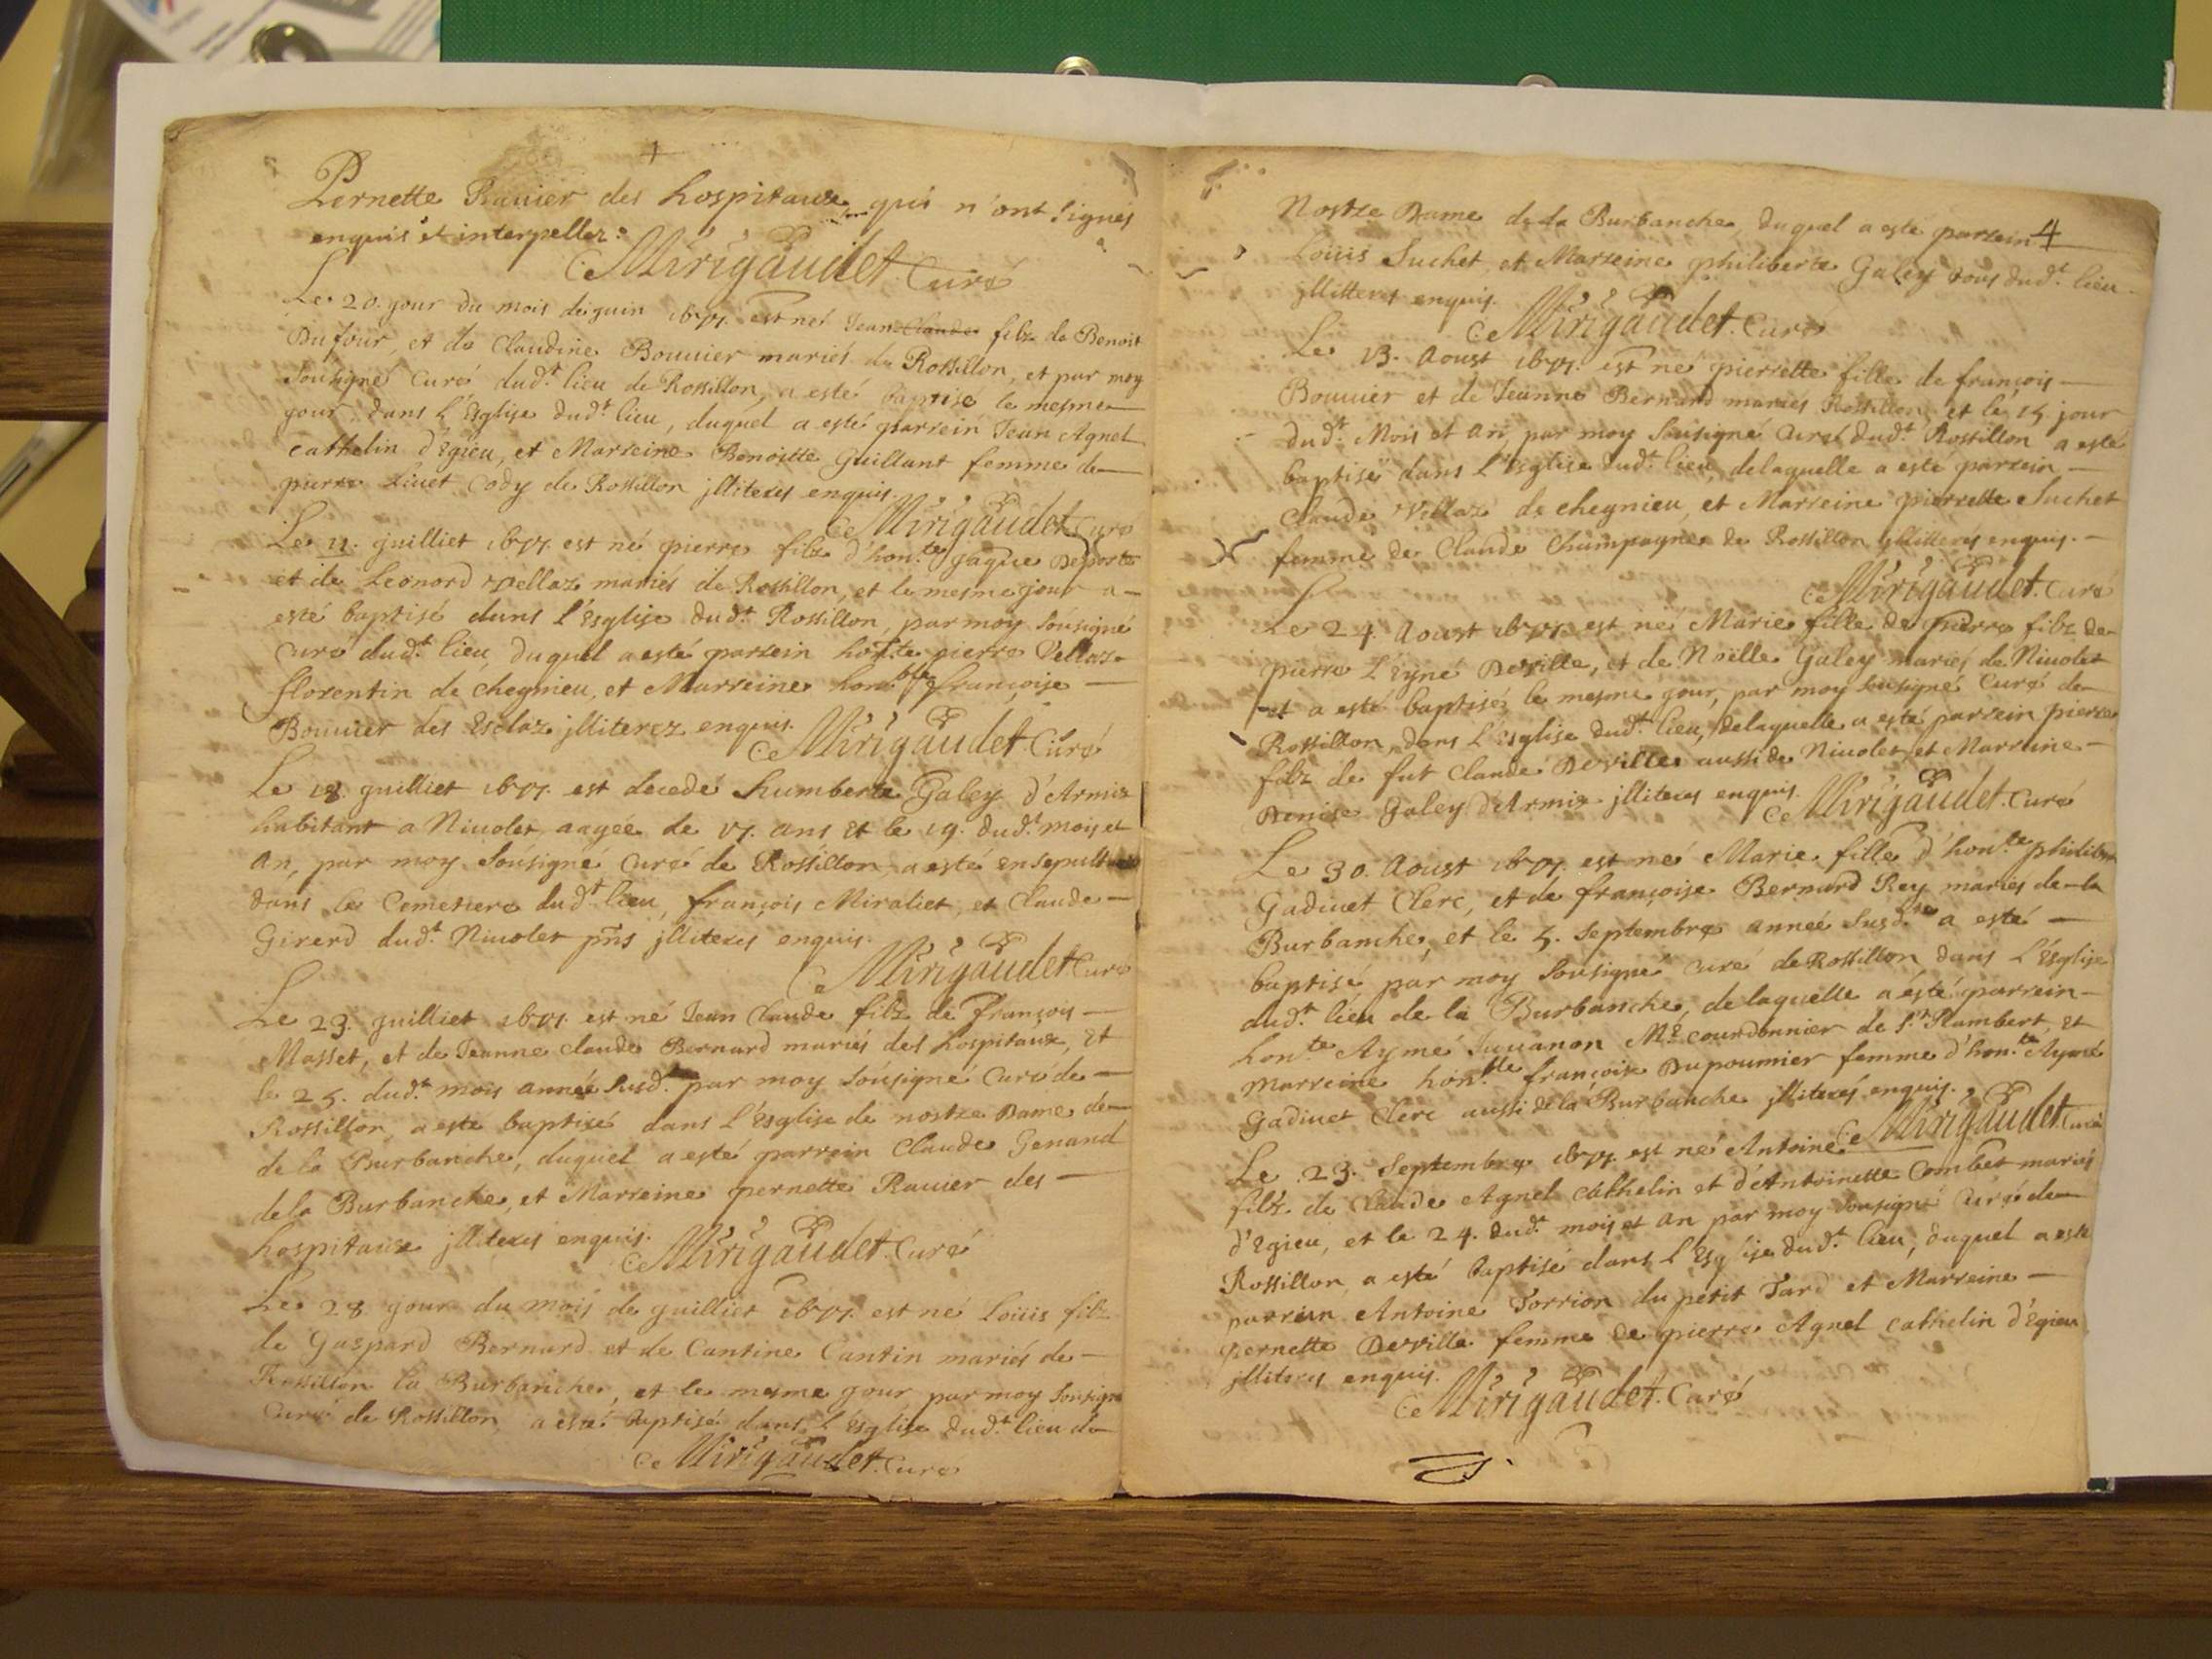 Pernette Rauier des hospitaux qui n'ont signés
enquis et interpellez.
Ce Mirigaudet. Curé
Le 20. jour du mois de juin est né Jean Claude filz de Benoit
Dufour, et de Claudine Bouuier mariés de Rossillon, et par moy
sousigné Curé dud.t lieu de Rossillon, a esté baptisé le mesme
jour dans l'Esglise dud.t lieu, duquel a esté parrein Jean Agnel
Cathelin d'Egieu, et Marreine Benoitte Guillant femme de
pierre Liuet Cody de Rossillon jlliterés enquis.
Ce Mirigaudet. Curé
Le 11. juilliet est né pierre filz d'hon.te jaque Deporte
et de Leonord Vellaz mariés de Rossillon, et le mesme jour a
esté baptisé dans l'Esglise dud.t Rossillon, par moy sousigné
Curé dud.t lieu, duquel a esté parrein hon.te pierre Vellaz
florentin de chegnieu, et Marreine hon.ble françoise
Bouuier des Esclaz jlliterez enquis.
Ce Mirigaudet. Curé
Le 18. juilliet est decedé humberte Galey d'Armix
habitant a Niuolet, aagée de ans et le 19. dud.t mois et
an, par moy sousigné Curé de Rossillon a esté
dans le Cemetiere dud.t lieu, françois Miraliet, et Claude
Girerd dud.t Niuolet pñs jlliterés enquis.
Ce Mirigaudet. Curé
Le 23. juilliet est né Jean Claude filz de françois
Masset, et de Jeanne Claude Bernard mariés des hospitaux, et
le 25. dud.t mois année susd.te par moy sousigné Curé de
Rossillon, a esté baptisé dans l'Esglise de nostre Dame de
de la Burbanche, duquel a esté parrein Claude Genand
de la Burbanche, et Marreine pernette Rauier des
hospitaux jlliterés enquis.
Ce Mirigaudet. Curé
Le 28. jour du mois de juilliet est né Louis filz
de Gaspard Bernard et de Cantine Cantin mariés de
Rossillon la Burbanche, et le mesme jour par moy sousigné
Curé de Rossillon, a esté baptisé dans l'Esglise dud.t lieu de
Ce Mirigaudet. Curé
Nostre Dame de la Burbanche, duquel a esté parrein
4
Louis Suchet, et Marreine philiberte Galey tous dud.t lieu
jlliterés enquis.
Ce Mirigaudet. Curé
Le 13. Aoust est né pierrette fille de françois
Bouuier et de Jeanne Bernard mariés Rossillon, et le 15. jour
dud.t Mois et an, par moy sousigné Curé dud.t Rossillon a esté
baptiseé dans l'Esglise dud.t lieu, delaquelle a esté parrein
Claude Vellaz de chegnieu, et Marreine pierrette Suchet
femme de Claude Champagne de Rossillon jlliterés enquis.
Ce Mirigaudet. Curé
Le 24. Aoust est né Marie fille de pierre filz de
pierre L'eyné Deville, et de Noëlle Galey mariés de Niuolet
et a esté baptisée le mesme jour, par moy sousigné Curé de
Rossillon, dans l'Esglise dud.t lieu, delaquelle a esté parrein pierre
filz de fut Claude Deville aussi de Niuolet et Marreine
Denise Galey d'Armix jlliterés enquis.
Ce Mirigaudet. Curé
Le 30. Aoust est né Marie fille d'hon.te
Gadiuet Clerc, et de françoise Bernard Rey mariés de la
Burbanche, et le 5. Septembre année susd.te a esté
baptisé par moy sousigné Curé de Rossillon dans l'Esglise
dud.t lieu de la Burbanche, de laquelle a esté parrein
hon.te Aymé Juuanon M.e courdonnier de S.t Rambert, et
marreine hon.ble françoise Dupoumier femme d'hon.te Aymé
Gadiuet Clerc aussi de la Burbanche jlliterés enquis.
Ce Mirigaudet. Curé
Le 23. Septembre est né Antoine
filz de Claude Agnel Cathelin et d'Antoinette Combet mariés
d'Egieu, et le 24. dud.t mois et an par moy sousigné Curé de
Rossillon, a esté baptisé dans l'Esglise dud.t lieu, duquel a esté
parrein Antoine Torrion du petit Tard et Marreine
pernette Deville femme de pierre Agnel Cathelin d'Egieu
jlliterés enquis.
Ce Mirigaudet. Curé